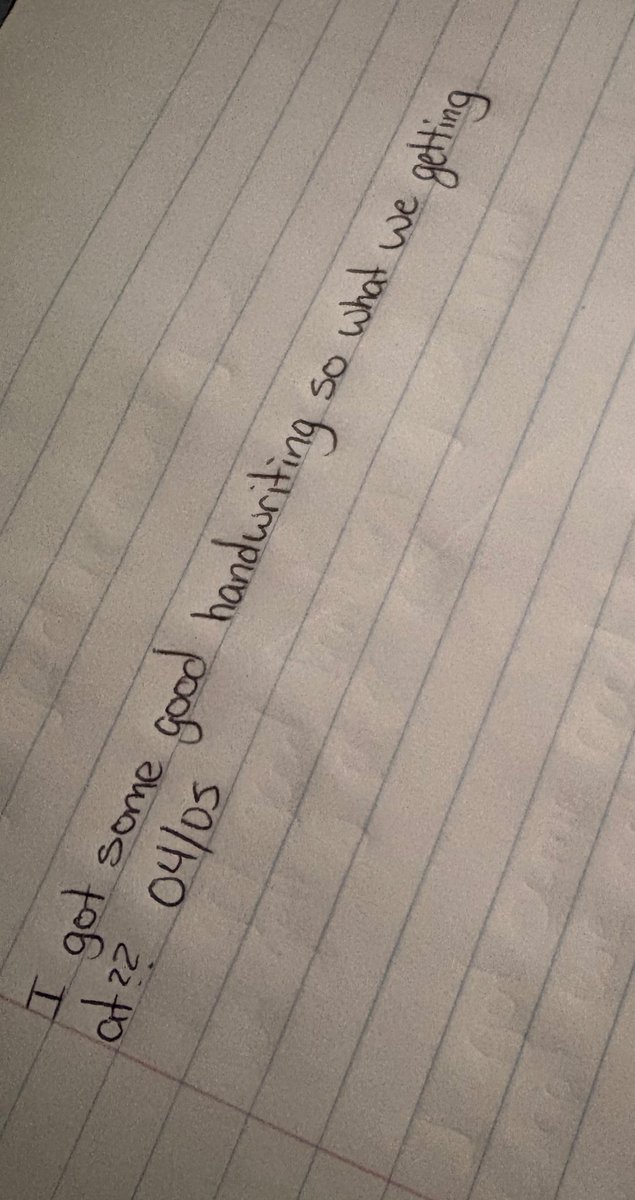 I got some good handwriting so what we getting
at?? 04/05